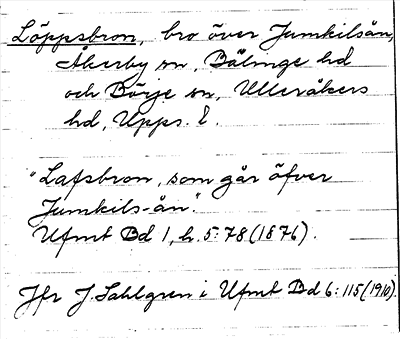 Löppsbron, bro över Jumkilsån,
Åkerby sn, Bälinge hd
och Börje sn, Ulleråkers
hd, Upps. l.
"Lafsbron, som går öfver
Jumkils-ån".
Ufmt Bd 1, h. 5:78 (1876).
Jfr J. Sahlgren i Ufmt Bd 6:115 (1910).